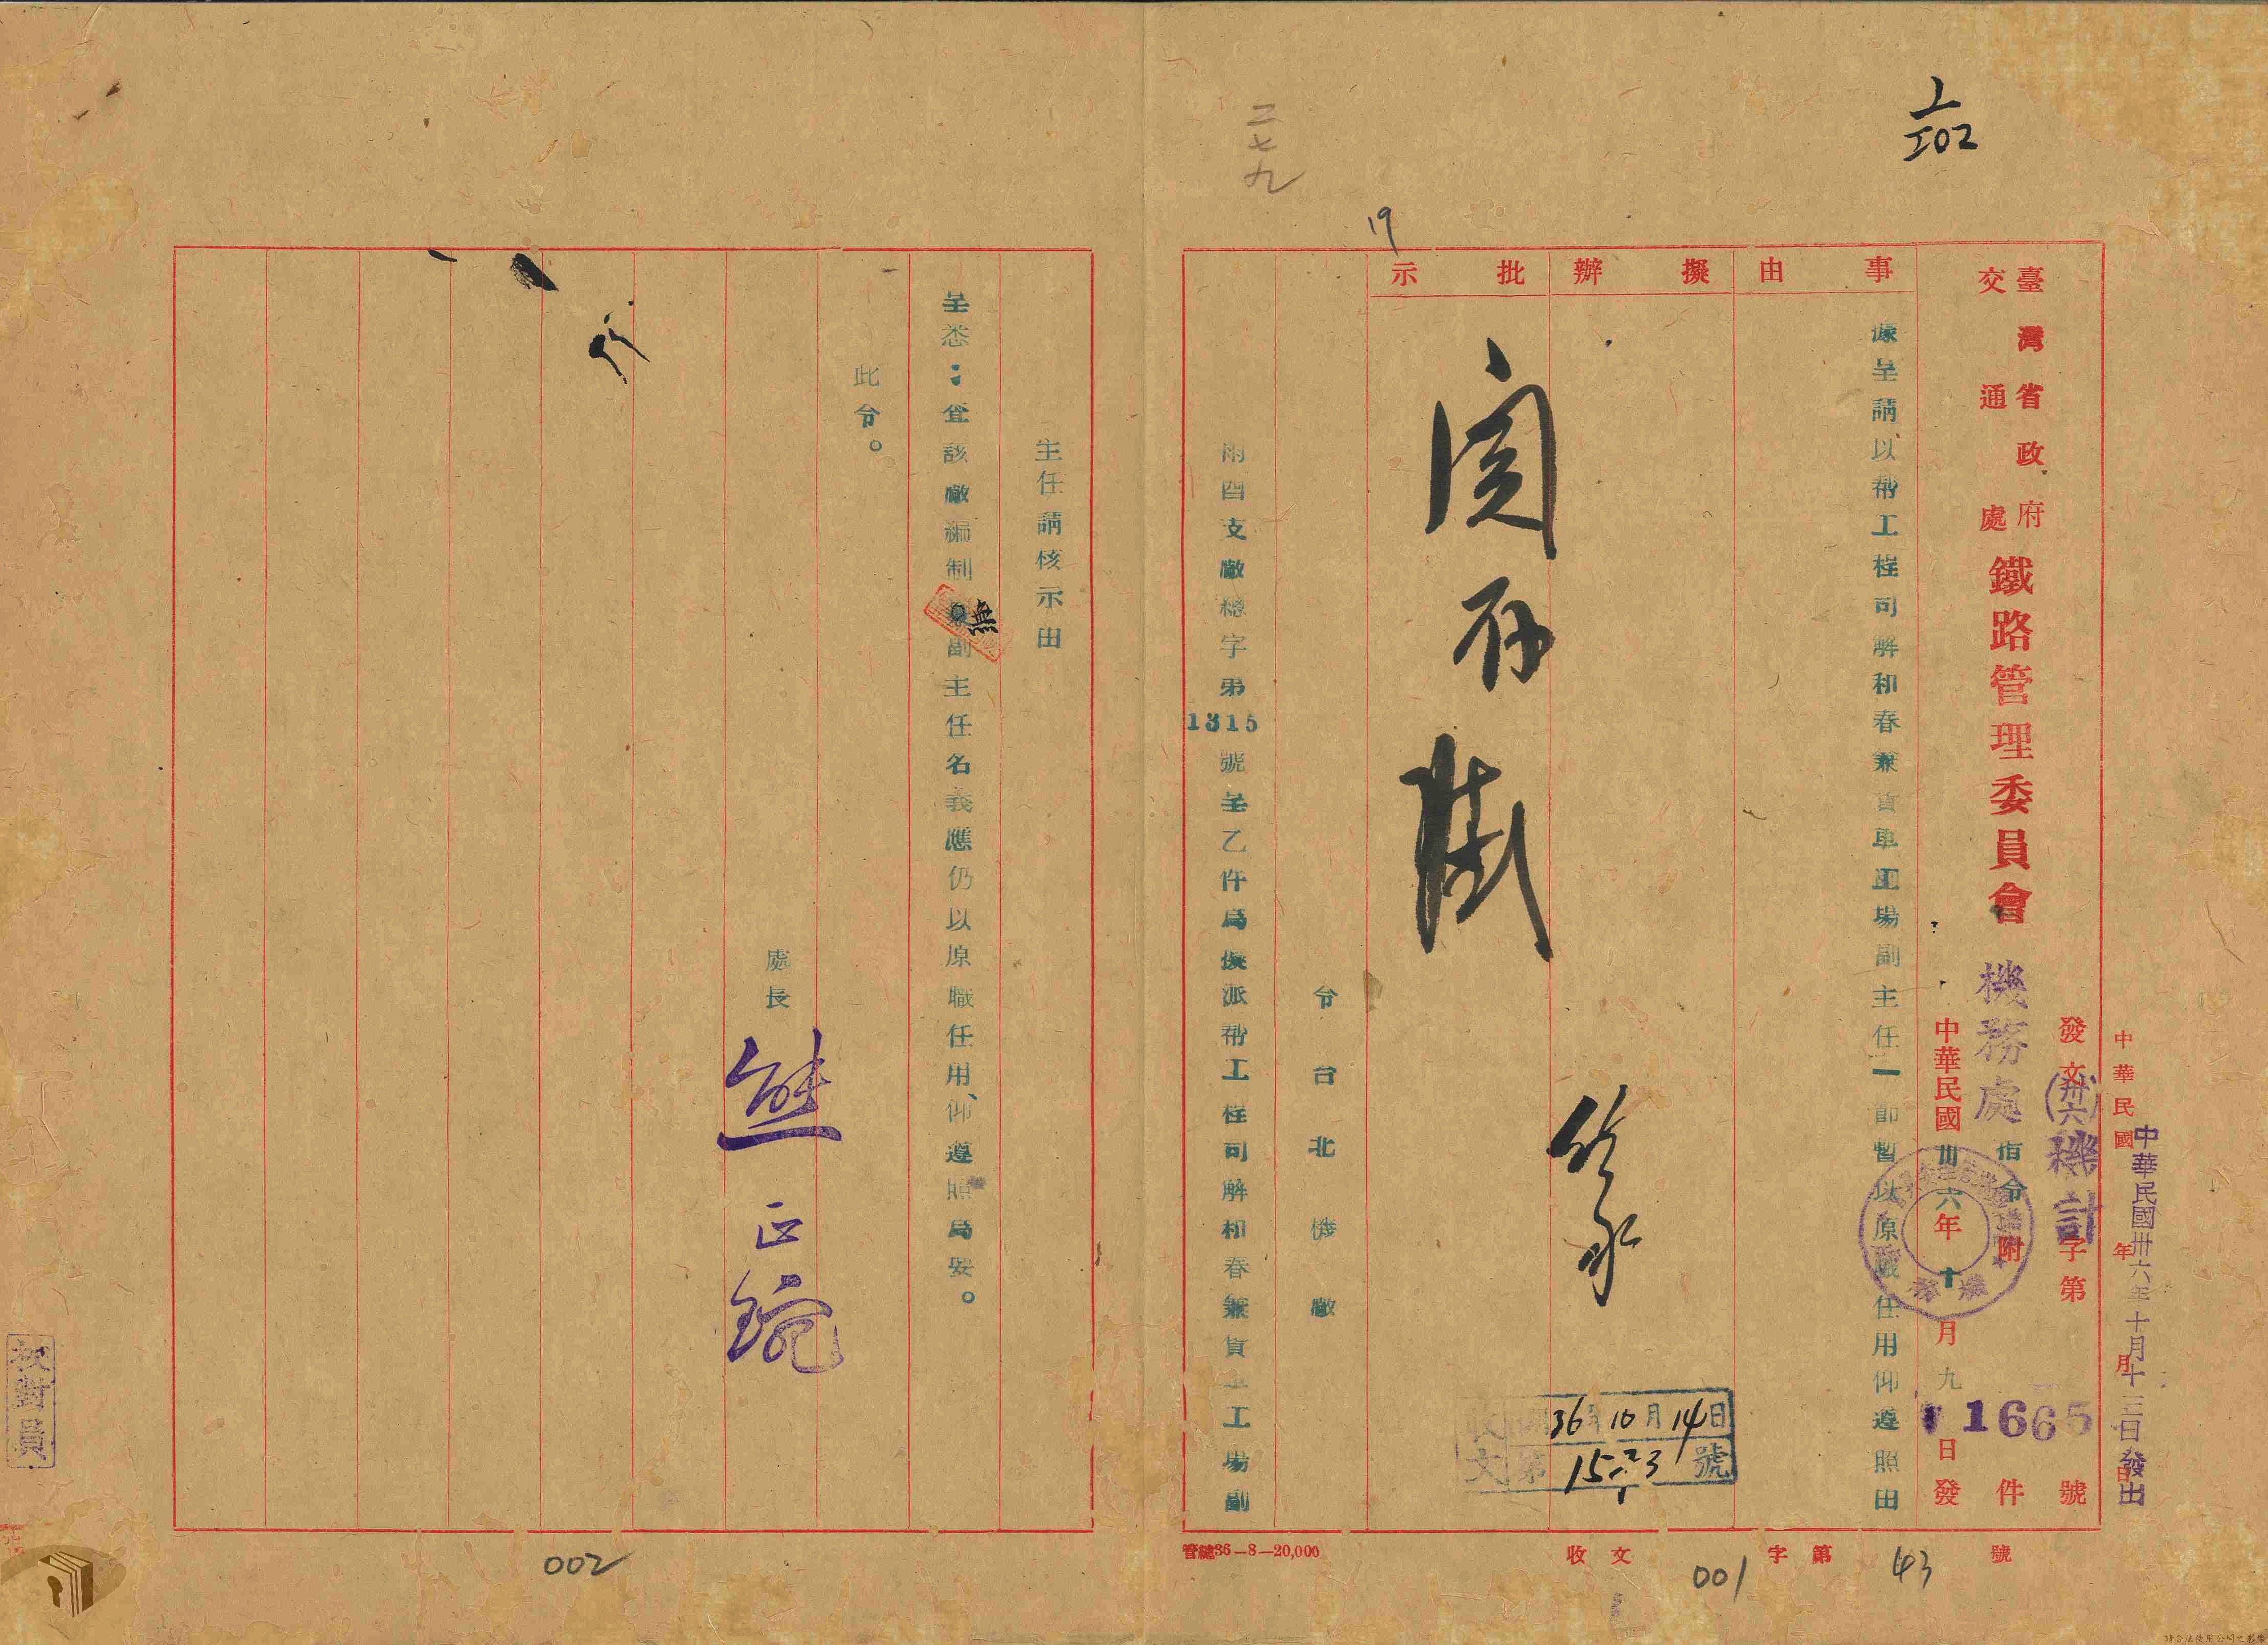 上
102
二七九
19
臺灣省政府
交通處
鐵路管理委員會
機務處
指令
附
件
發文
(卅六)
機計
字第
11665
號
中華民國 年 月 日
中華民國卅六年十月十三日發出
中華民國卅六年十月九日發
事由
據呈請以幫工程司解和春兼貨車工場副主任一節暫以原職任用仰遵照由
擬辦
批示
閱
存
36年10月14日
收文
第
號
令台北機廠
雨酉支廠總字第1315號呈乙件為擬派幫工程司解和春兼貨車工場副
主任請核示由
呈悉：查該廠編制無副主任名義應仍以原職任用、仰遵照為要。
此令。
處長
熊正琬
校對員
管總36—8—20,000
收文
字第
43
號
001
002